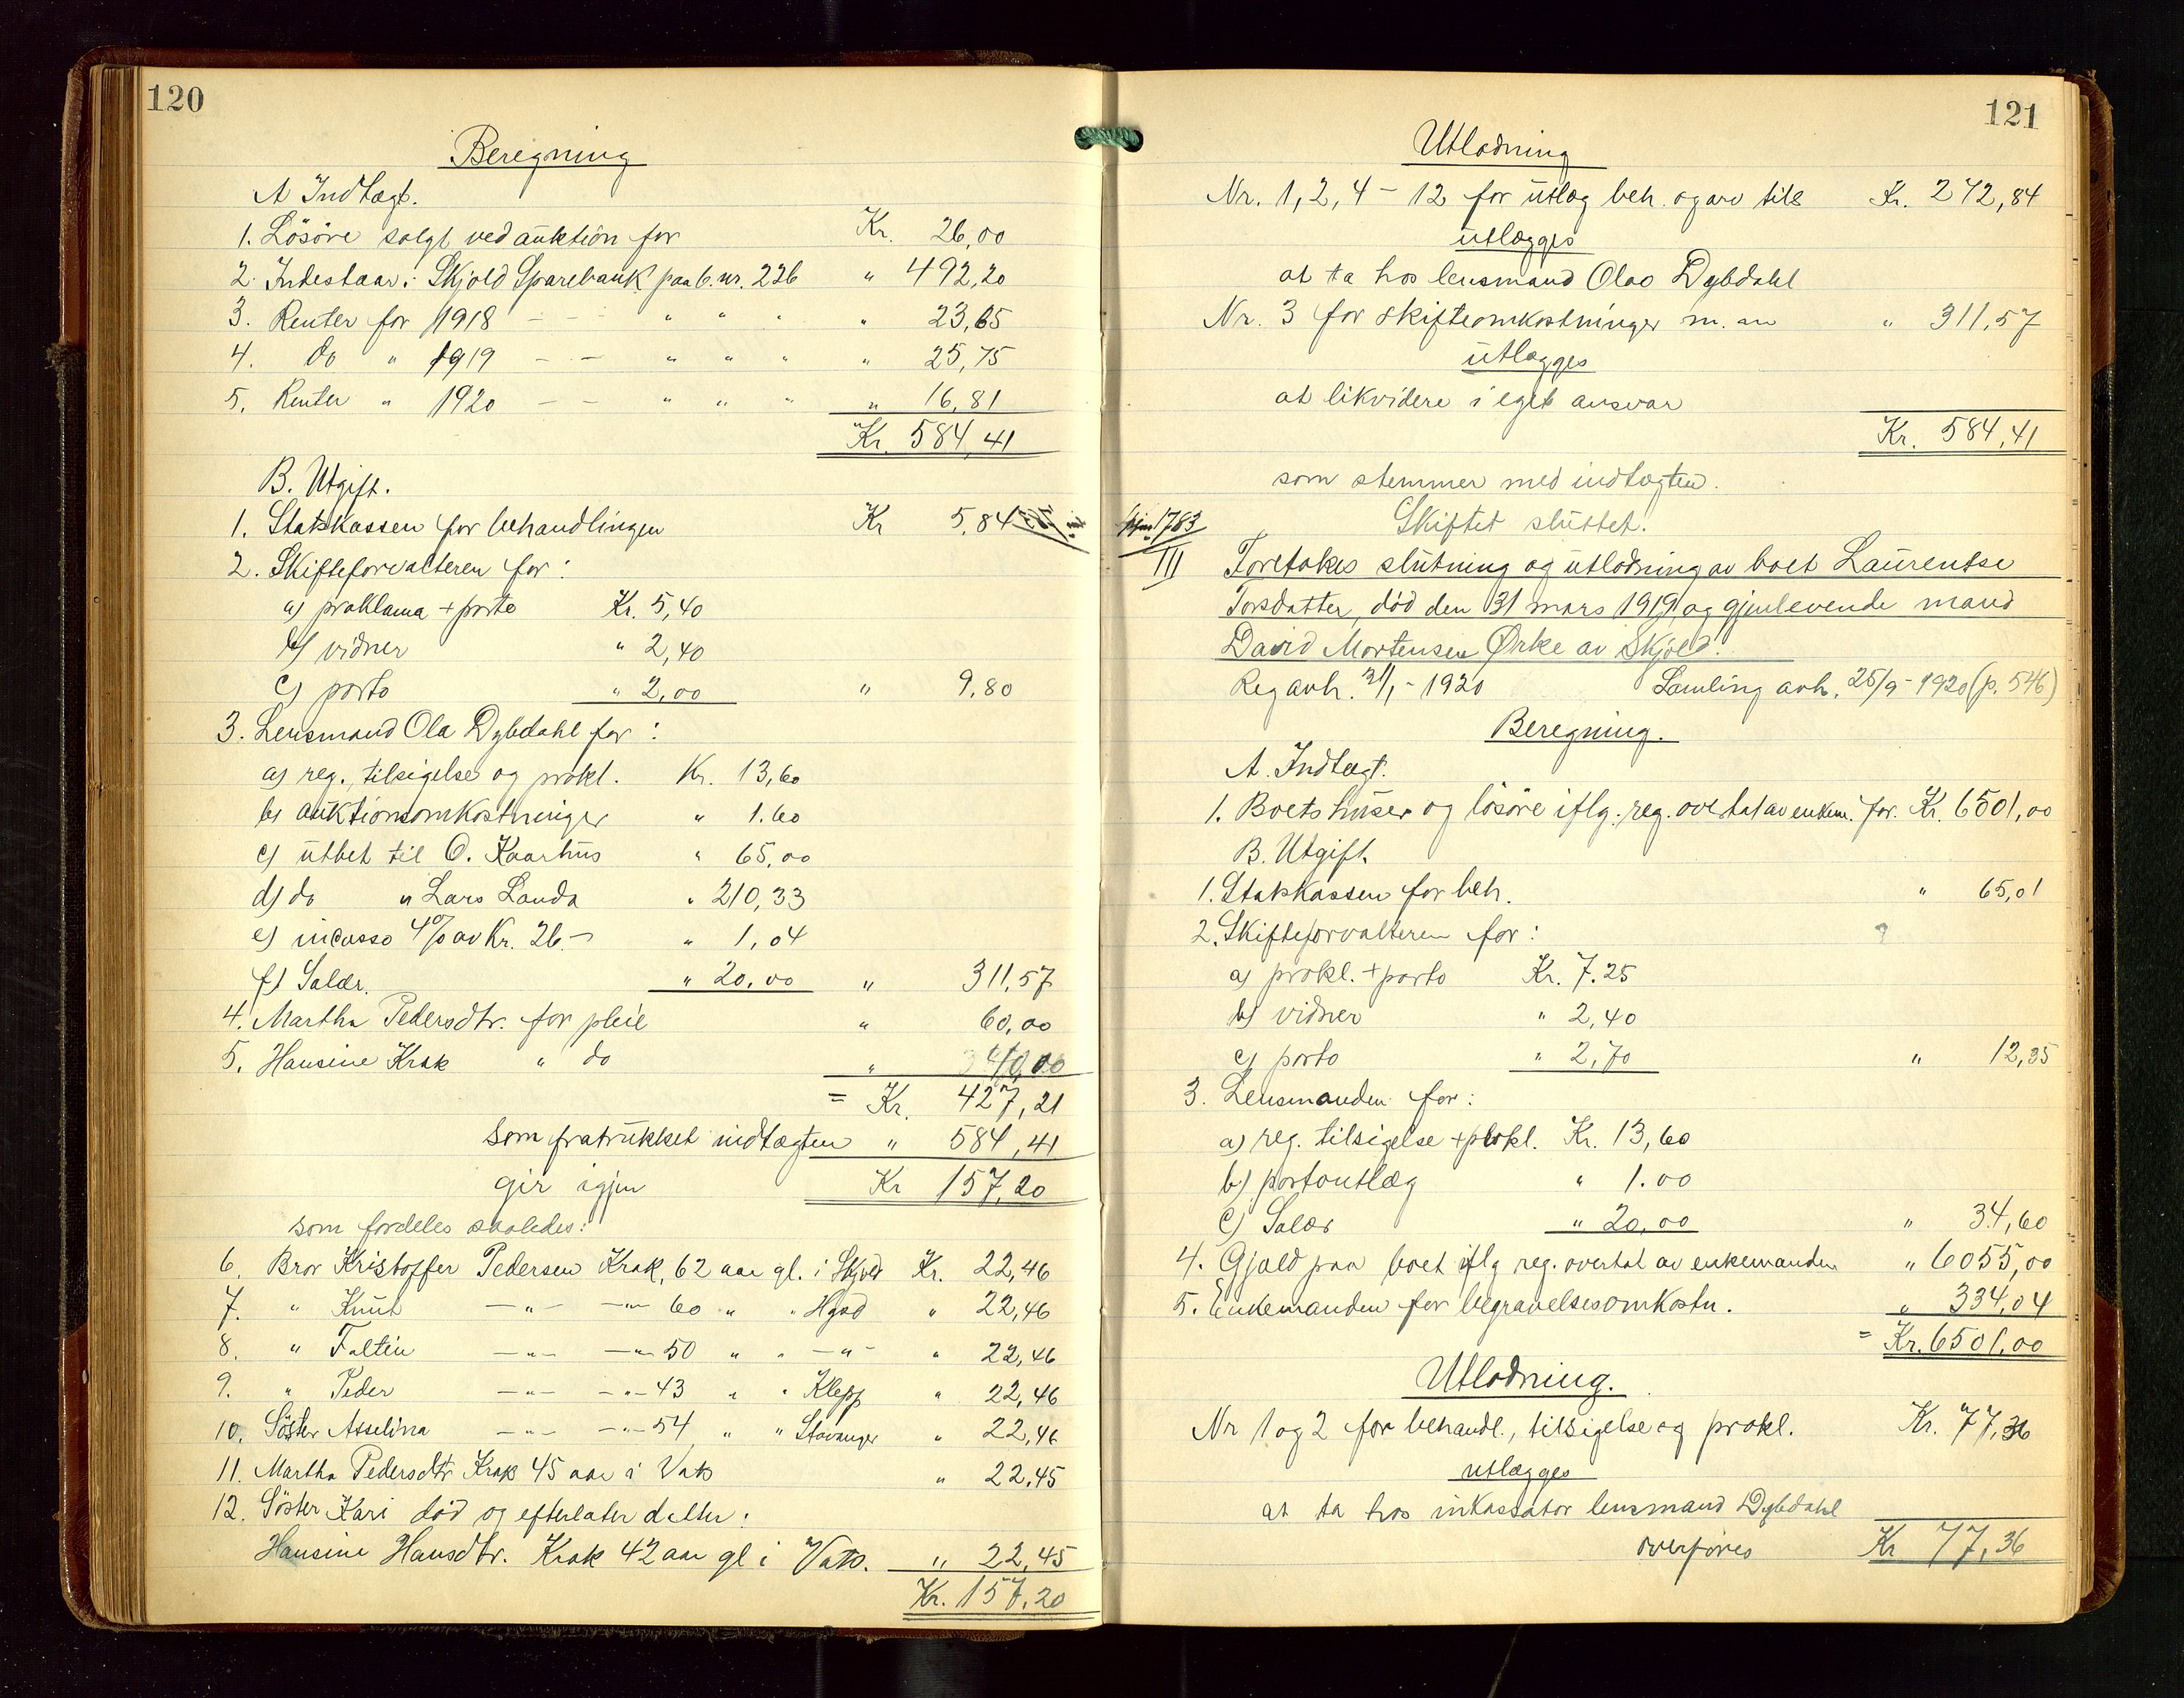 120
Beregning
A Indtægt.
1. Lösöre solgt ved auktion for Kr. 26,00
2. Indestaar i Skjold Sparebank paa b. nr. 226 " 492,20
3. Renter for 1918 - - - " " " " 23,65
4. do " 1919 - - " " " " 25,75
5. Renter " 1920 - - " " " " 16,81
Kr. 584,41
B. Utgift.
1. Statskassen for behandlingen Kr 5,84
2. Skifteforvalteren for:
a) proklama + porto Kr. 5,40
b) vidner " 2,40
c) porto " 2,00 " 9,80
3. Lensmand Ola Dybdahl for:
a) reg., tilsigelse og prokl. Kr. 13,60
b) auktionsomkostninger " 1.60
c) utbet til O. Kaarhus " 65,00
d) do " Lars Landa " 210,33
e) incasso 4% av Kr. 26.- " 1,04
f) Salær. " 20,00 " 311,57
4. Martha Pedersdtr. for pleie " 60,00
5. Hansine Krak " do " 40,00
= Kr. 427,21
som fratrukket indtægten " 584,41
gir igjen Kr 157,20
som fordeles saaledes:
6. Bror Kristoffer Pedersen Krak, 62 aar gl. i Skjold Kr. 22,46
7. " Knut -"- -"- 60 " " " 22,46
8. " Faltin -"- -"- 50 " " -"- " 22,46
9. " Peder -"- -"- 43 " " Klepp " 22,46
10. Söster Asselina -"- -"- 54 " " Stavanger " 22,46
11. Martha Pedersdtr Krak 45 aar i Vats " 22,45
12. Söster Kari död og efterlater datter:
Hansine Hansdtr. Krak 42 aar gl i Vats. " 22,45
Kr. 157,20
121
Utlodning
Nr. 1, 2, 4 - 12 for utlæg beh. og arv tils Kr. 272,84
utlægges
at ta hos lensmand Olao Dybdahl
Nr. 3 for skifteomkostninger m. m " 311,57
utlægges
at likvidere i eget ansvar
Kr. 584,41
som stemmer med indtægten.
Skiftet sluttet.
1783
III Foretokes slutning og utlodning av boet Laurentse
Torsdatter, död den 31 mars 1919, og gjenlevende mand
David Mortensen Ørke av Skjold.
Reg avh. 31/1 - 1920 Samling avh. 25/9 - 1920 (p. 546)
Beregning.
A. Indtægt.
1. Boets huser og lösöre iflg. reg. overtat av enkem. for. Kr. 6501,00
B. Utgift.
1. Statskassen for beh. " 65,01
2. Skifteforvalteren for:
a) prokl. + porto Kr. 7.25
b) vidner " 2,40
c) porto " 2,70 " 12,35
3. Lensmanden for:
a) reg. tilsigelse + prokl. Kr. 13,60
b) portoutlæg " 1.00
c) Salær " 20,00 " 34,60
4. Gjæld paa boet iflg reg. overtat av enkemanden " 6055,00
5. Enkemanden for begravelsesomkostn. " 334,04
= Kr. 6501,00
Utlodning.
Nr 1 og 2 for behandl., tilsigelse og prokl. Kr. 77,36
utlægges
at ta hos inkassator lensmand Dybdahl
overføres Kr 77,36